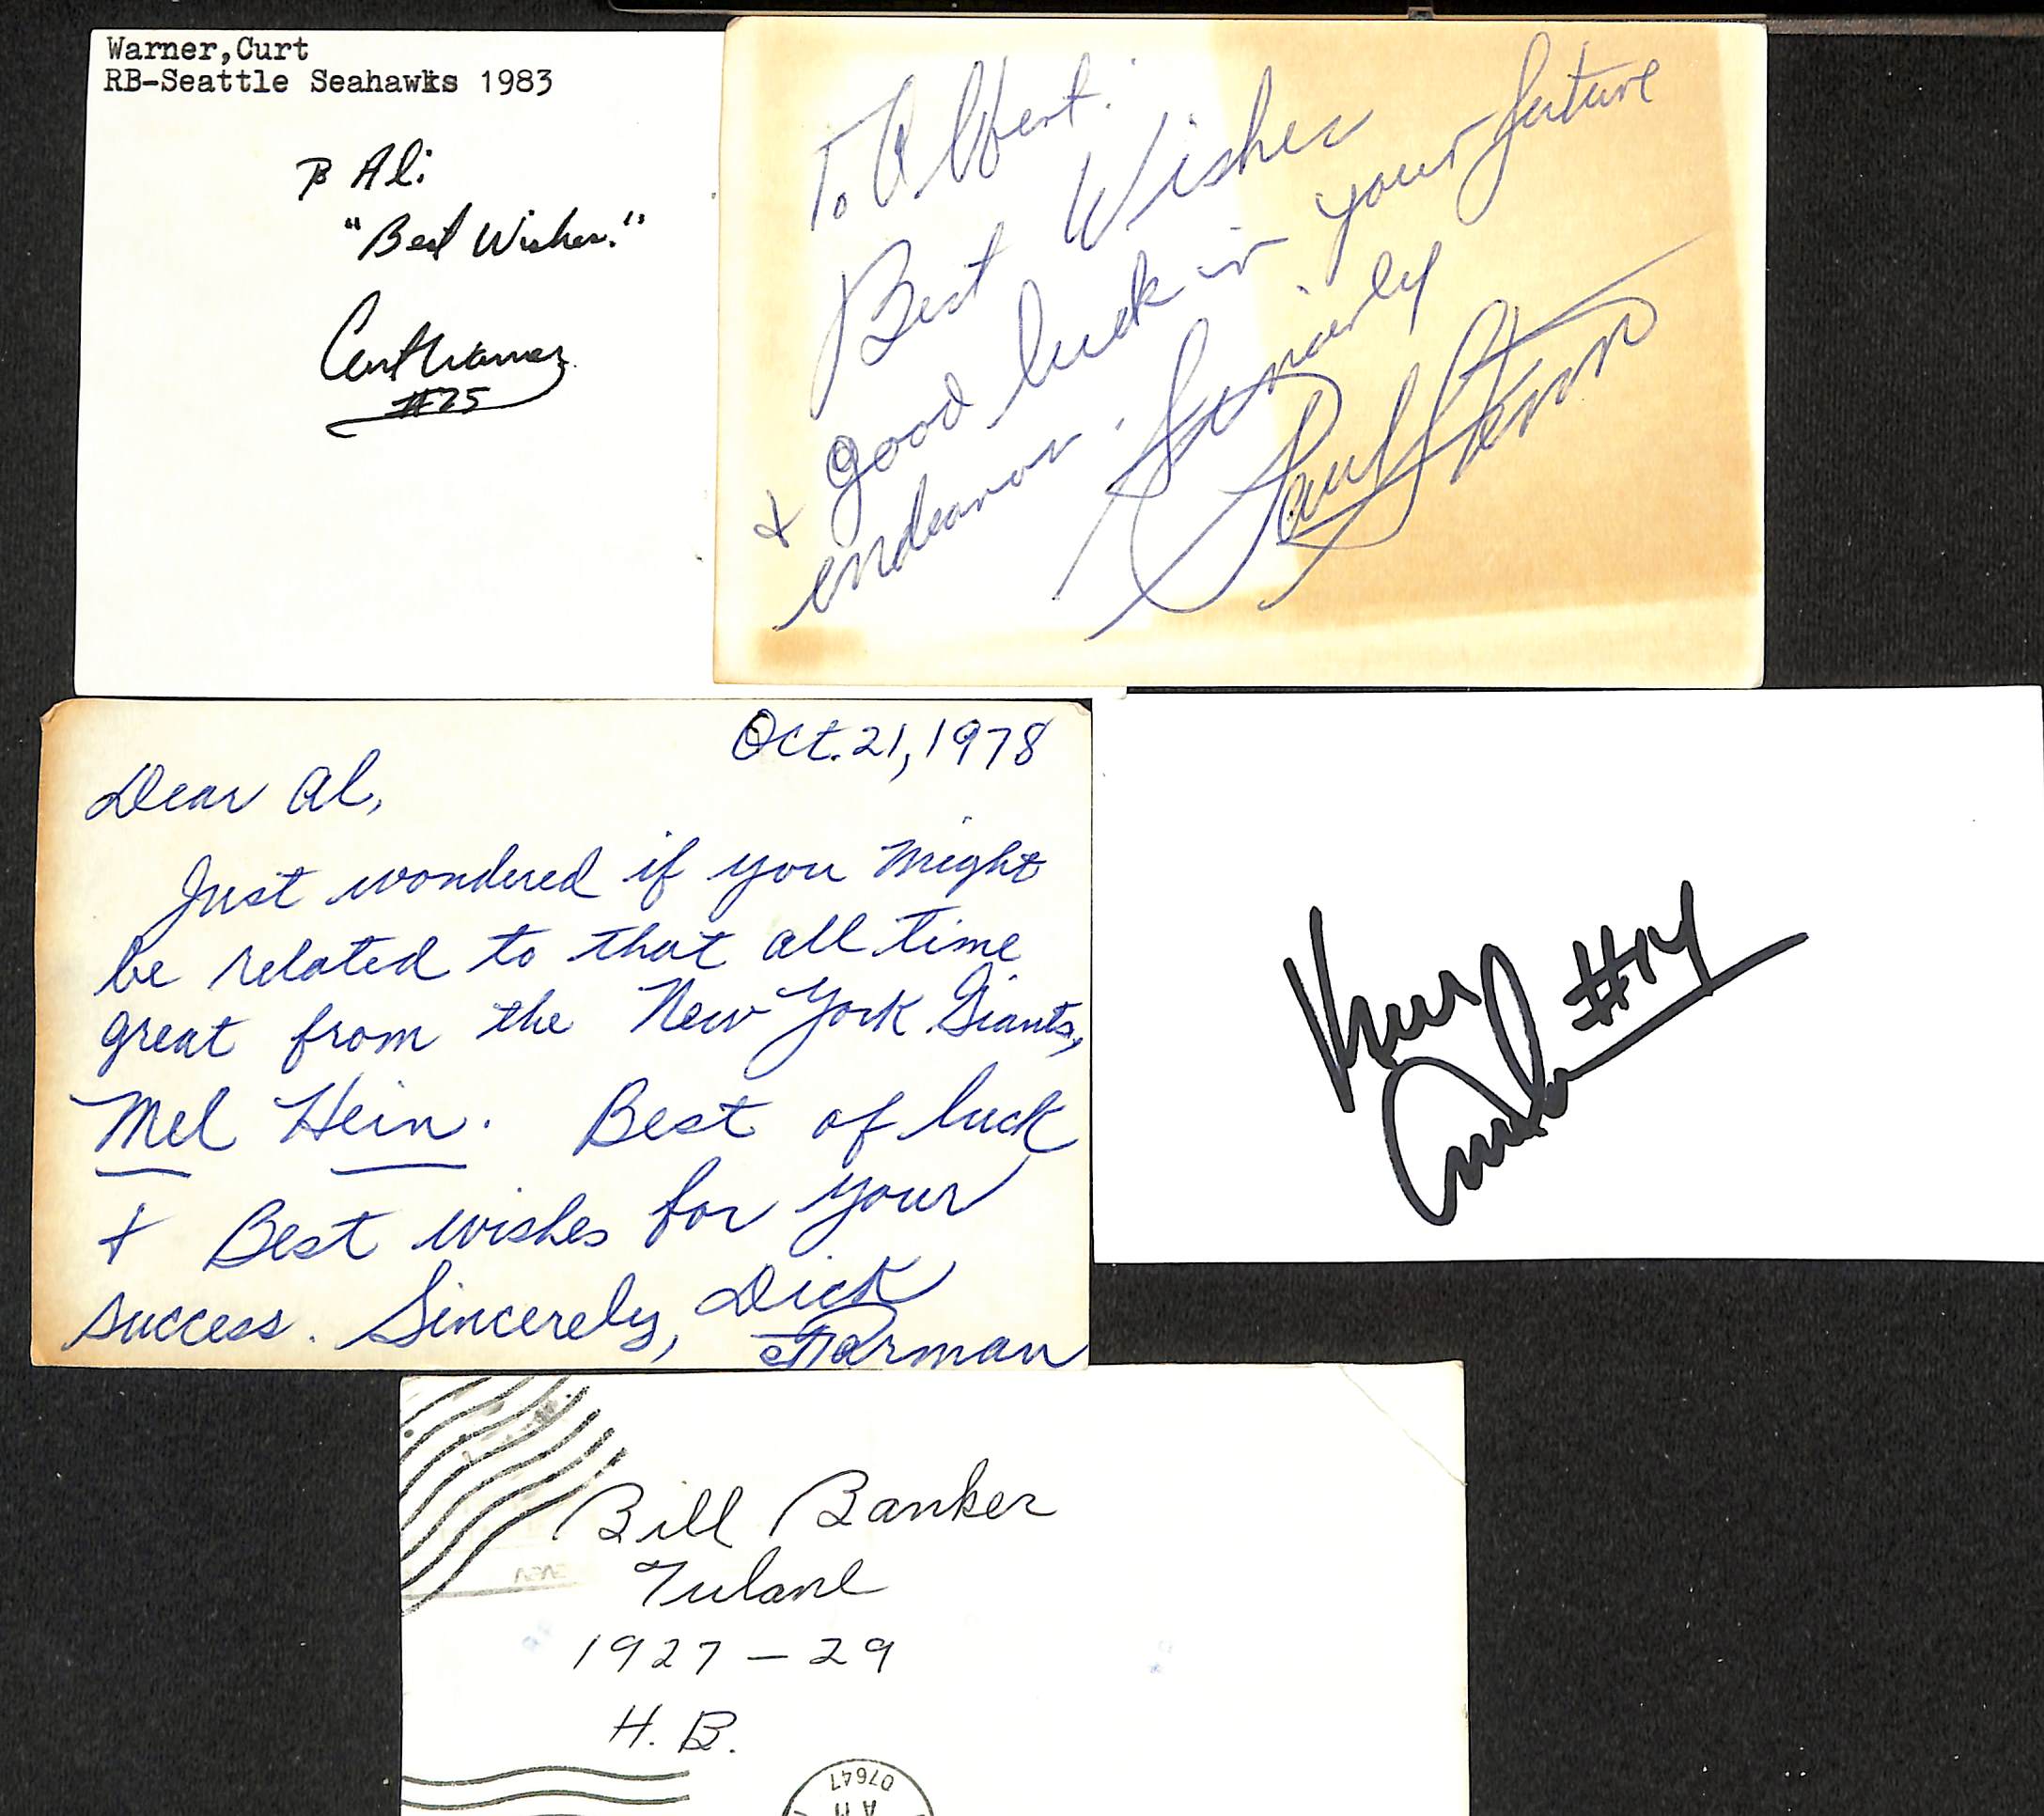 Warner,Curt
RB-Seattle Seahawks 1983
To Ali
"Best Wishes."
Curt Warner
#25
To Albert.
Best Wishes
& good luck in your future
endeavor. Sincerely
Paul
Oct. 21, 1978
Dear Al,
Just wondered if you might
be related to that all time
great from the New York Giants,
Mel Hein. Best of luck
& Best wishes for your
success. Sincerely, Dick
Barwegan
#14
Bill Banker
Tulane
1927 - 29
H. B.
07647
AM